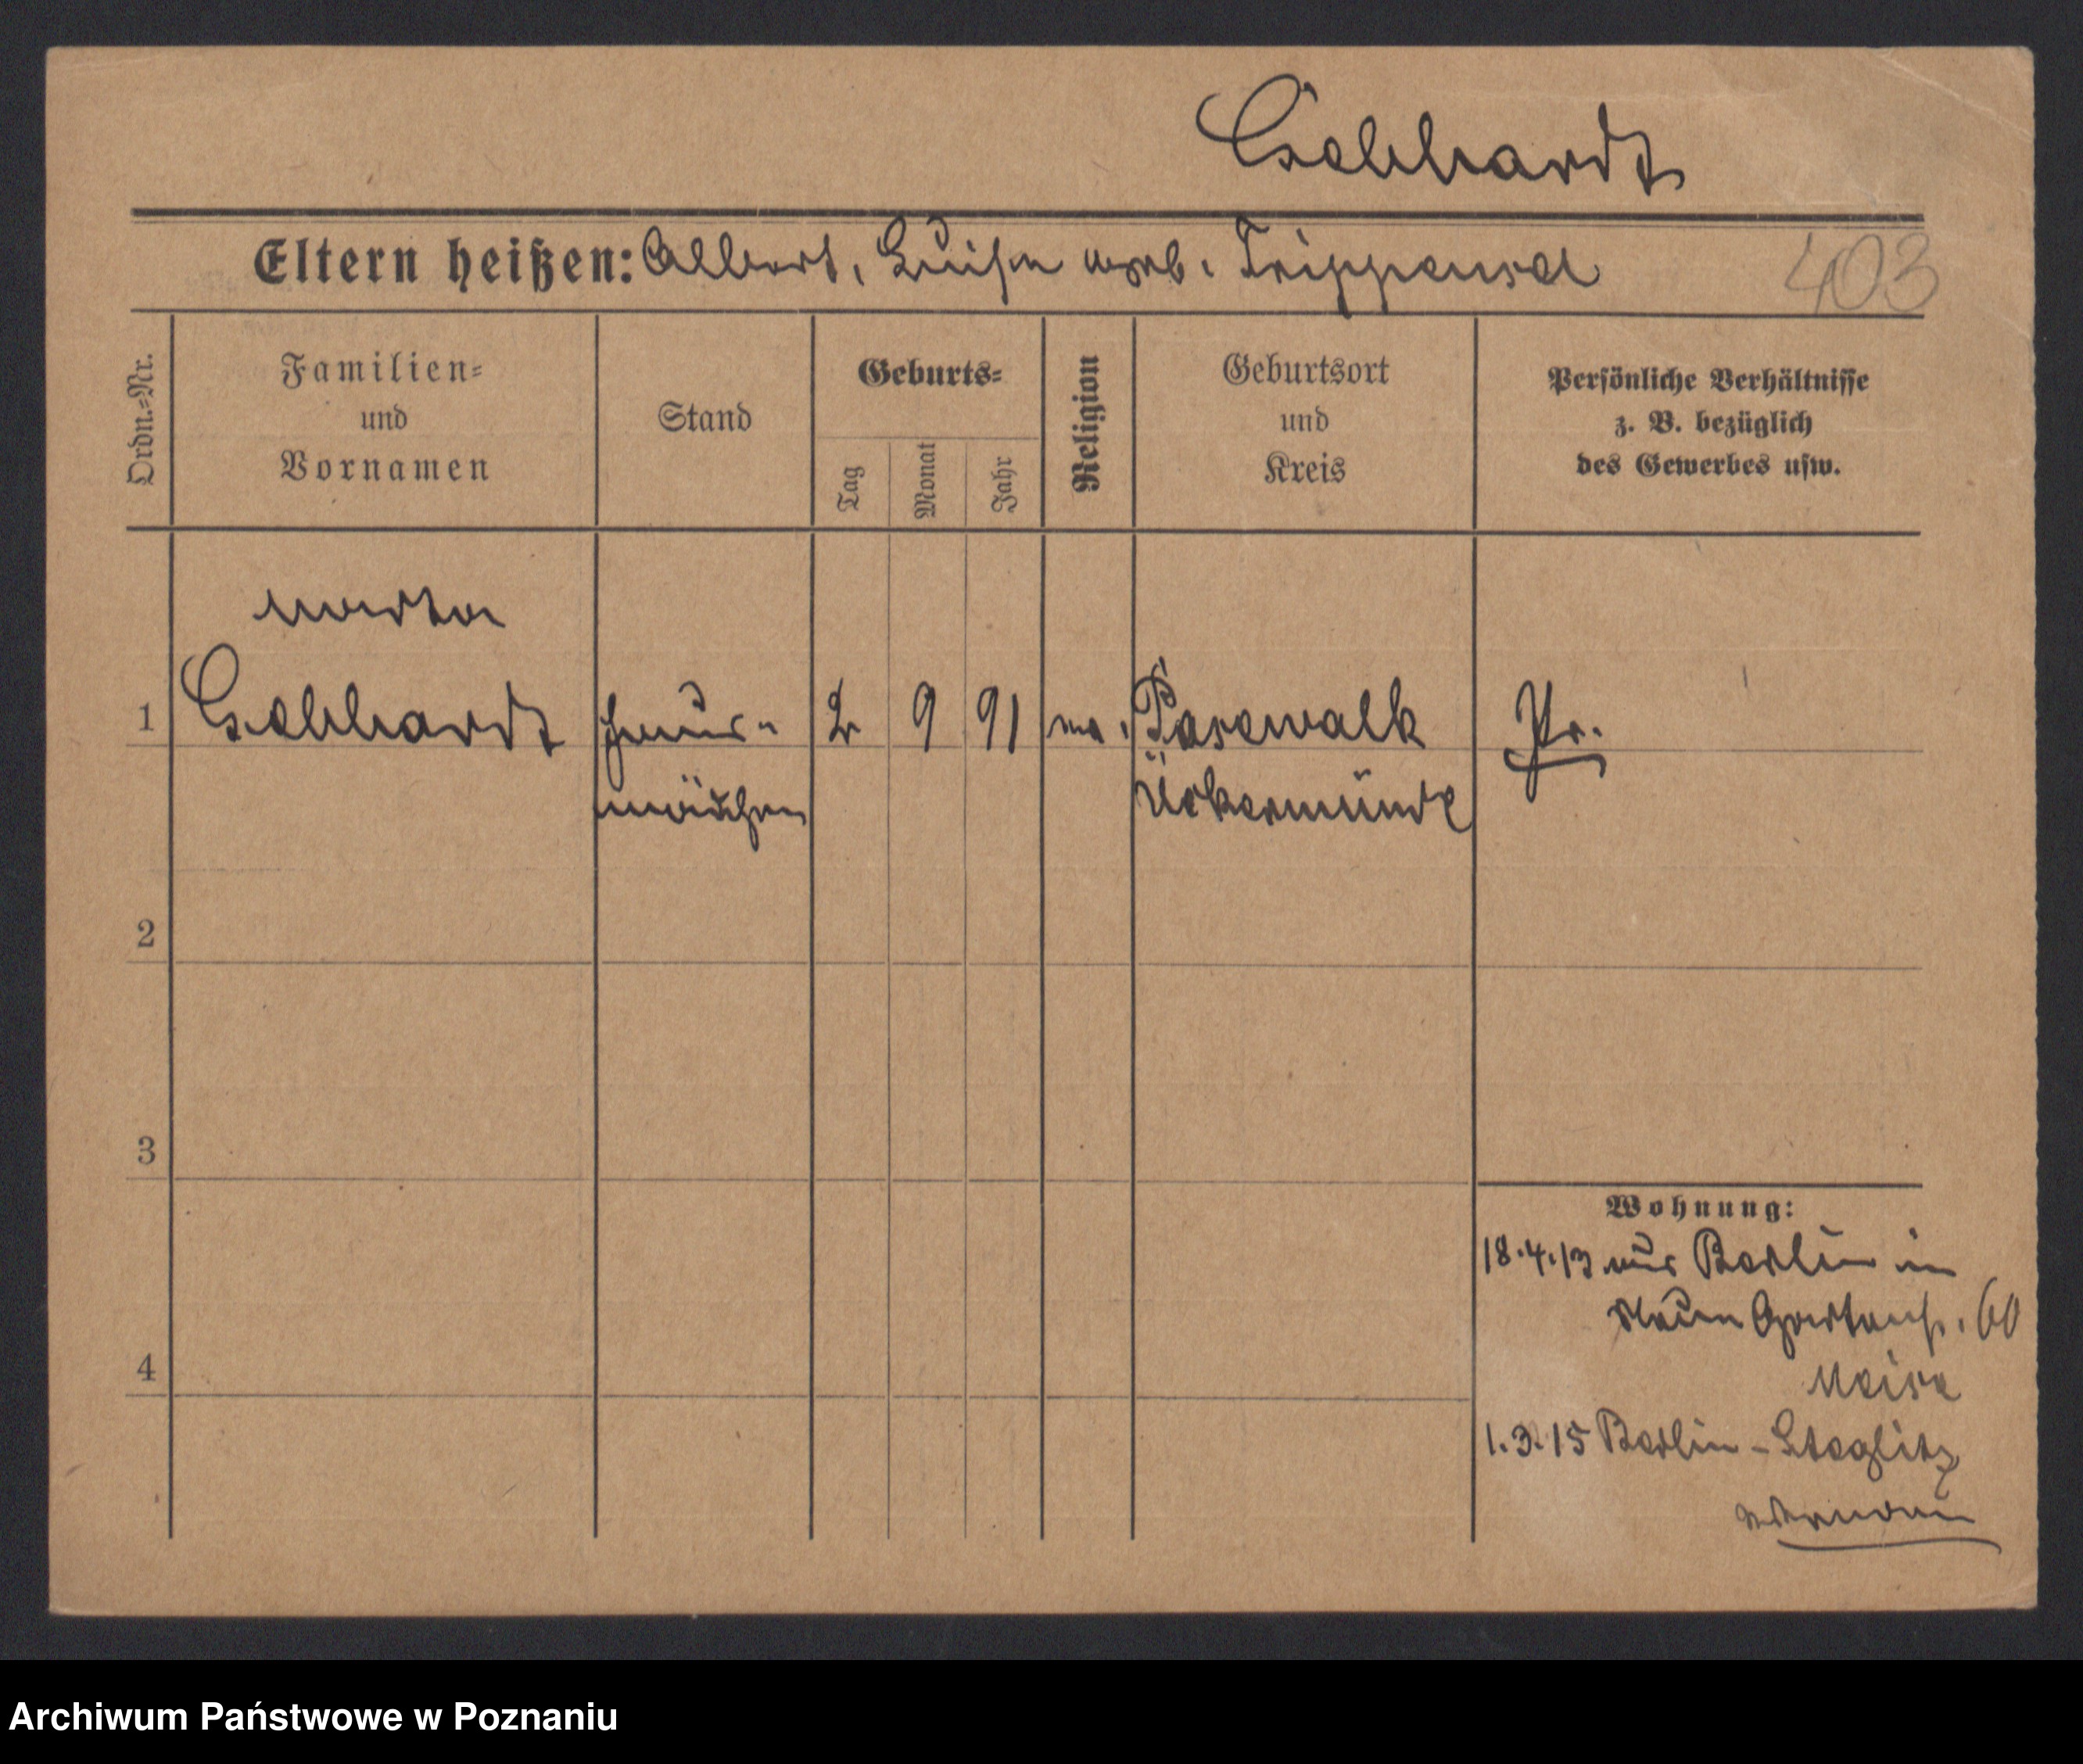 Gebhardt
Eltern heißen: Albert, Luise geb. Trippensee
403
Ordn.-Nr.
Familien-
und
Vornamen
Stand
Geburts-
Tag
Monat
Jahr
Religion
Geburtsort
und
Kreis
Persönliche Verhältnisse
z. B. bezüglich
des Gewerbes usw.
Martha
1 Gebhardt Haus- 2 9 91 ev. Pasewalk Pr.
mädchen Ückermünde
2
3
4
Wohnung:
18.4.13 aus Berlin in
Gartenstr. 60
1.3.15 Berlin-Steglitz
Archiwum Państwowe w Poznaniu